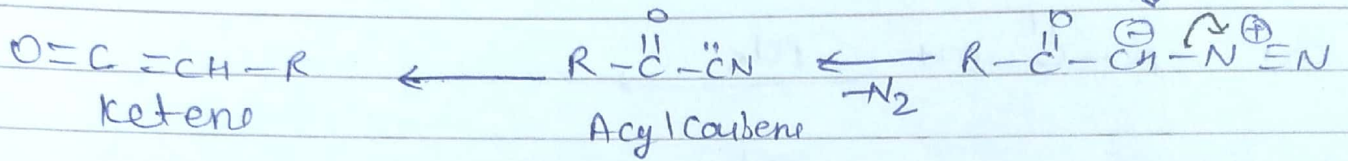 O=C=CH-R ← R-C(=O)-C̈N ←(-N2) R-C(=O)-CH(⊖)-N(⊕)≡N
Ketene Acylcoubene